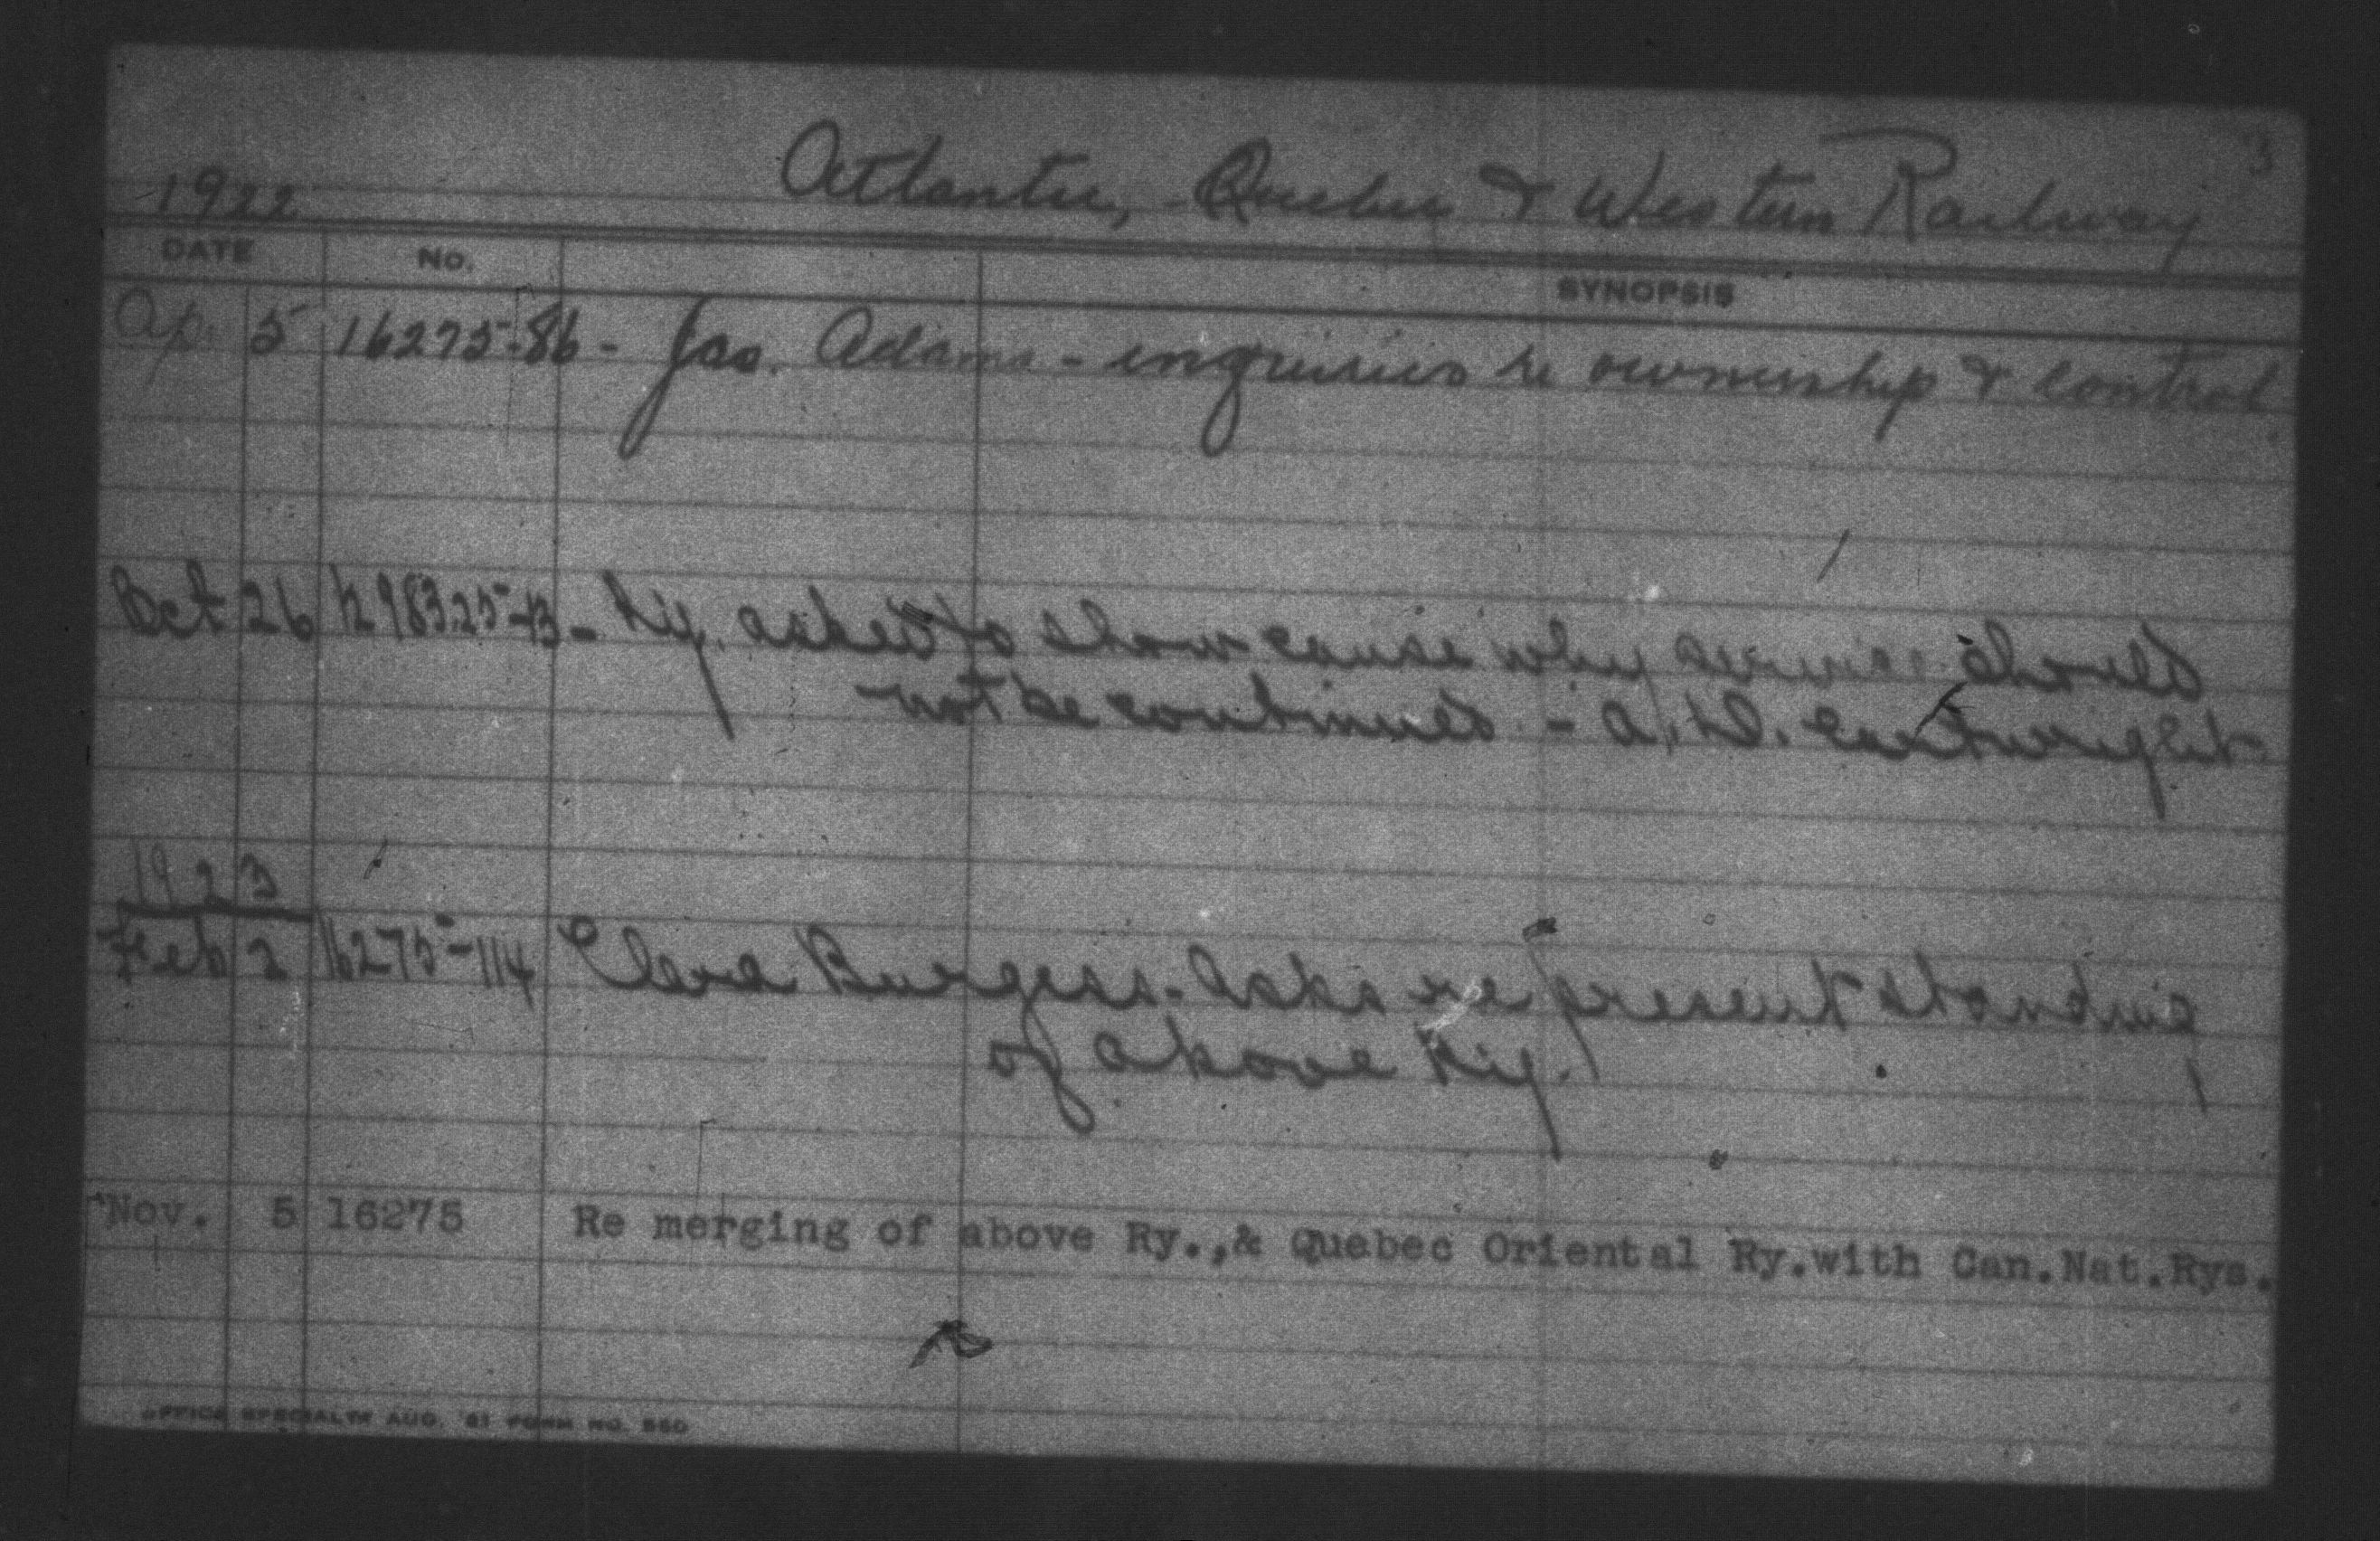 3
1922 Atlantic, Quebec & Western Railway
DATE No. SYNOPSIS
Ap. 5 16275-86 - Jas. Adams - inquiries re ownership & control
Oct 26 - Ry. asked to show cause why service should
not be continued - A. D. Cartwright
1923
Feb 2 16275-114 Clara Burgess - Asks re present standing
of above Ry.
Nov. 5 16275 Re merging of above Ry.,& Quebec Oriental Ry.with Can.Nat.Rys.
OFFICE SPECIALTY AUG. '21 FORM NO. 550